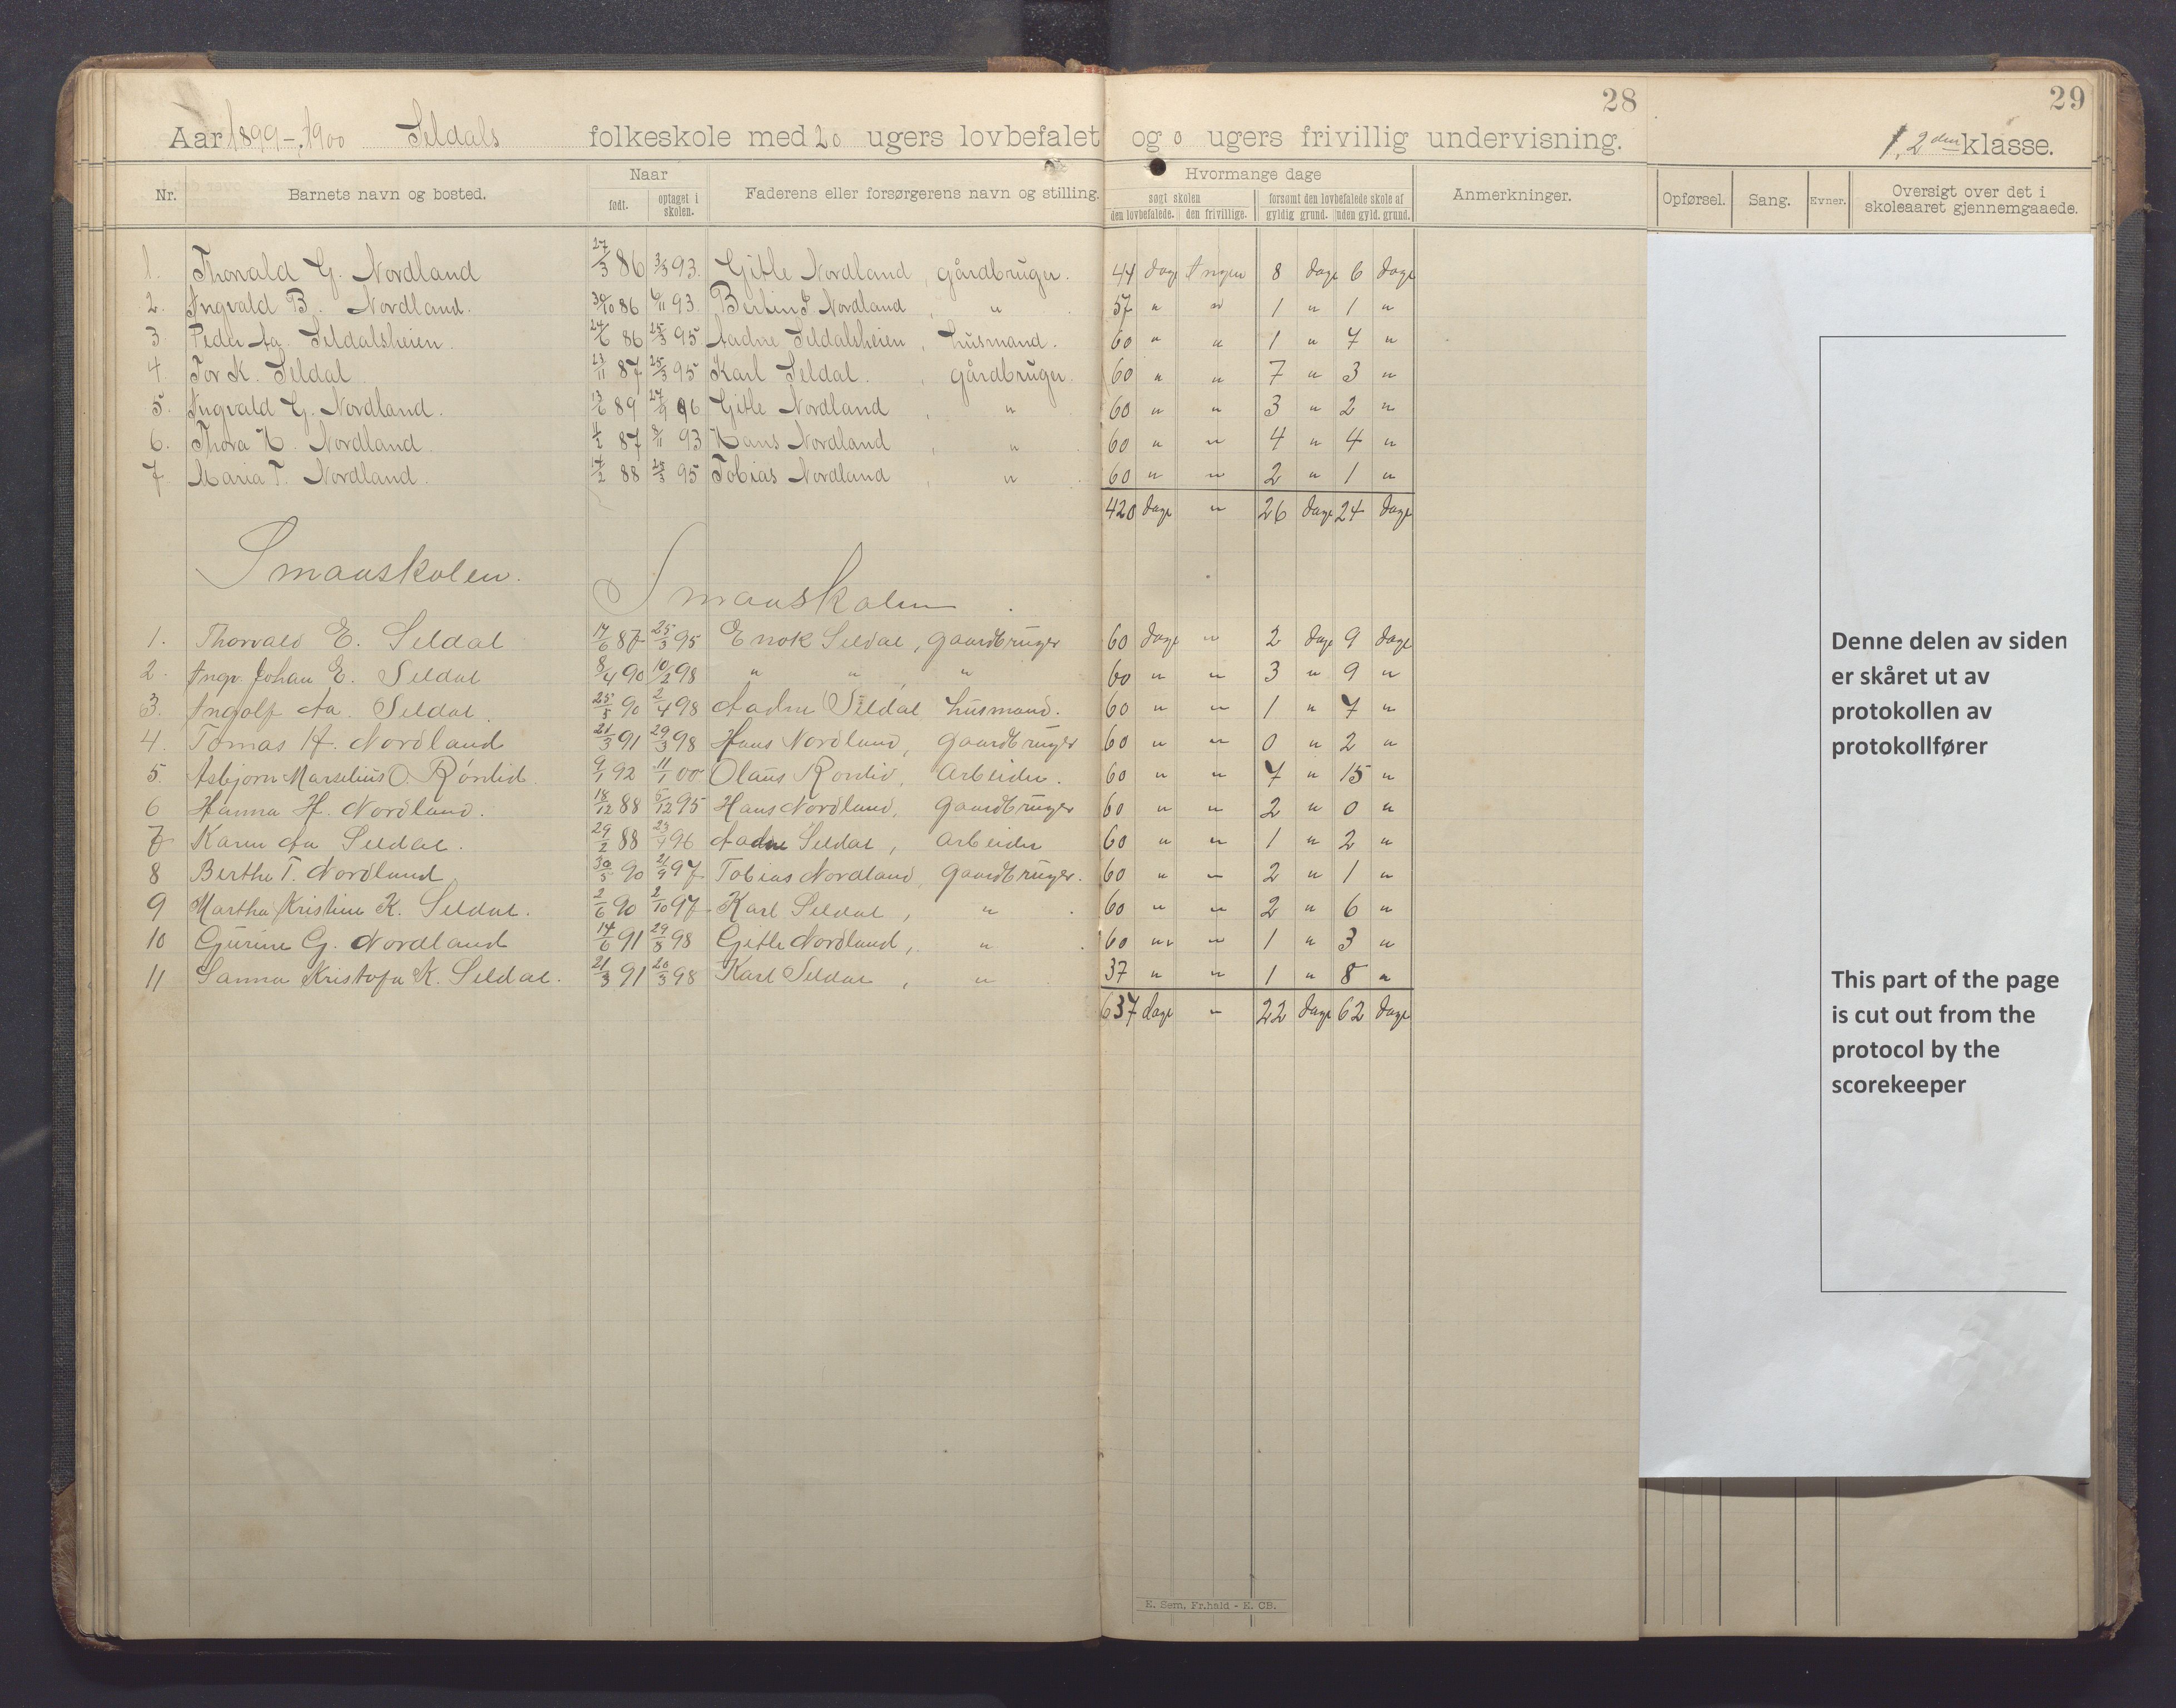 28
29
Aar 1899-1900 Seldals folkeskole med 20 ugers lovbefalet og 0 ugers frivillig undervisning.
1, 2den klasse.
Nr. Barnets navn og bosted. Naar født. optaget i skolen. Faderens eller forsørgerens navn og stilling. Hvormange dage søgt skolen den lovbefalede. den frivillige. forsømt den lovbefalede skole af gyldig grund. uden gyld. grund. Anmerkninger. Opførsel. Sang. Evner. Oversigt over det i skoleaaret gjennemgaaede.
1. Thorvald G. Nordland 27/3 86 3/3 93. Gitle Nordland, gårdbruger. 44 dage Ingen 8 dage 6 dage
2. Ingvald B. Nordland. 30/10 86 6/11 93 Bertin S. Nordland, " 57 " " 1 " 1 "
3. Peder Aa. Seldalsheien. 24/6 86 25/3 95 Aadne Seldalsheien, husmand. 60 " " 1 " 7 "
4. Tor K. Seldal 23/11 87 25/3 95 Karl Seldal, gårdbruger. 60 " " 7 " 3 "
5. Ingvald G. Nordland. 13/6 89 96 Gitle Nordland, " 60 " " 3 " 2 "
6. Thora H. Nordland. 4/2 87 8/11 93 Hans Nordland, " 60 " " 4 " 4 "
7 Maria T. Nordland. 14/2 88 25/3 95 Tobias Nordland, " 60 " " 2 " 1 "
420 dage " 26 dage 24 dage
Smaaskolen.
Smaaskolen.
1. Thorvald E. Seldal 17/6 87 25/3 95 Enok Seldal, gaardbruger 60 dage " 2 dage 9 dage
2. Ingv. Johan E. Seldal 8/4 90 10/2 98 " " , " 60 " " 3 " 9 "
3. Ingolf Aa. Seldal. 25/5 90 2/4 98 Aadne Seldal husmand. 60 " " 1 " 7 "
4. Tomas H. Nordland 21/3 91 29/3 98 Hans Nordland, gaardbruger 60 " " 0 " 2 "
5. Asbjørn Marselius O. Rónlid. 9/1 92 11/1 00 Olaus Rónlid, Arbeider. 60 " " 7 " 15 "
6 Hanna H. Nordland. 18/12 88 5/12 95 Hans Nordland, gaardbruger 60 " " 2 " 0 "
7 Karen Aa Seldal. 29/2 88 23/9 96 Aadne Seldal, arbeider 60 " " 1 " 2 "
8 Bertha T. Nordland 30/5 90 21/9 97 Tobias Nordland, gaardbruger. 60 " " 2 " 1 "
9 Martha Kristine K. Seldal. 2/6 90 2/10 97 Karl Seldal, " 60 " " 2 " 6 "
10 Gurine G. Nordland 14/6 91 29/8 98 Gitle Nordland, " 60 " " 1 " 3 "
11 Sanna Kristofa K. Seldal. 21/3 91 20/3 98 Karl Seldal, " 37 " " 1 " 8 "
637 dage " 22 dage 62 dage
Denne delen av siden
er skåret ut av
protokollen av
protokollfører
This part of the page
is cut out from the
protocol by the
scorekeeper
E. Sem, Fr.hald - E. CB.